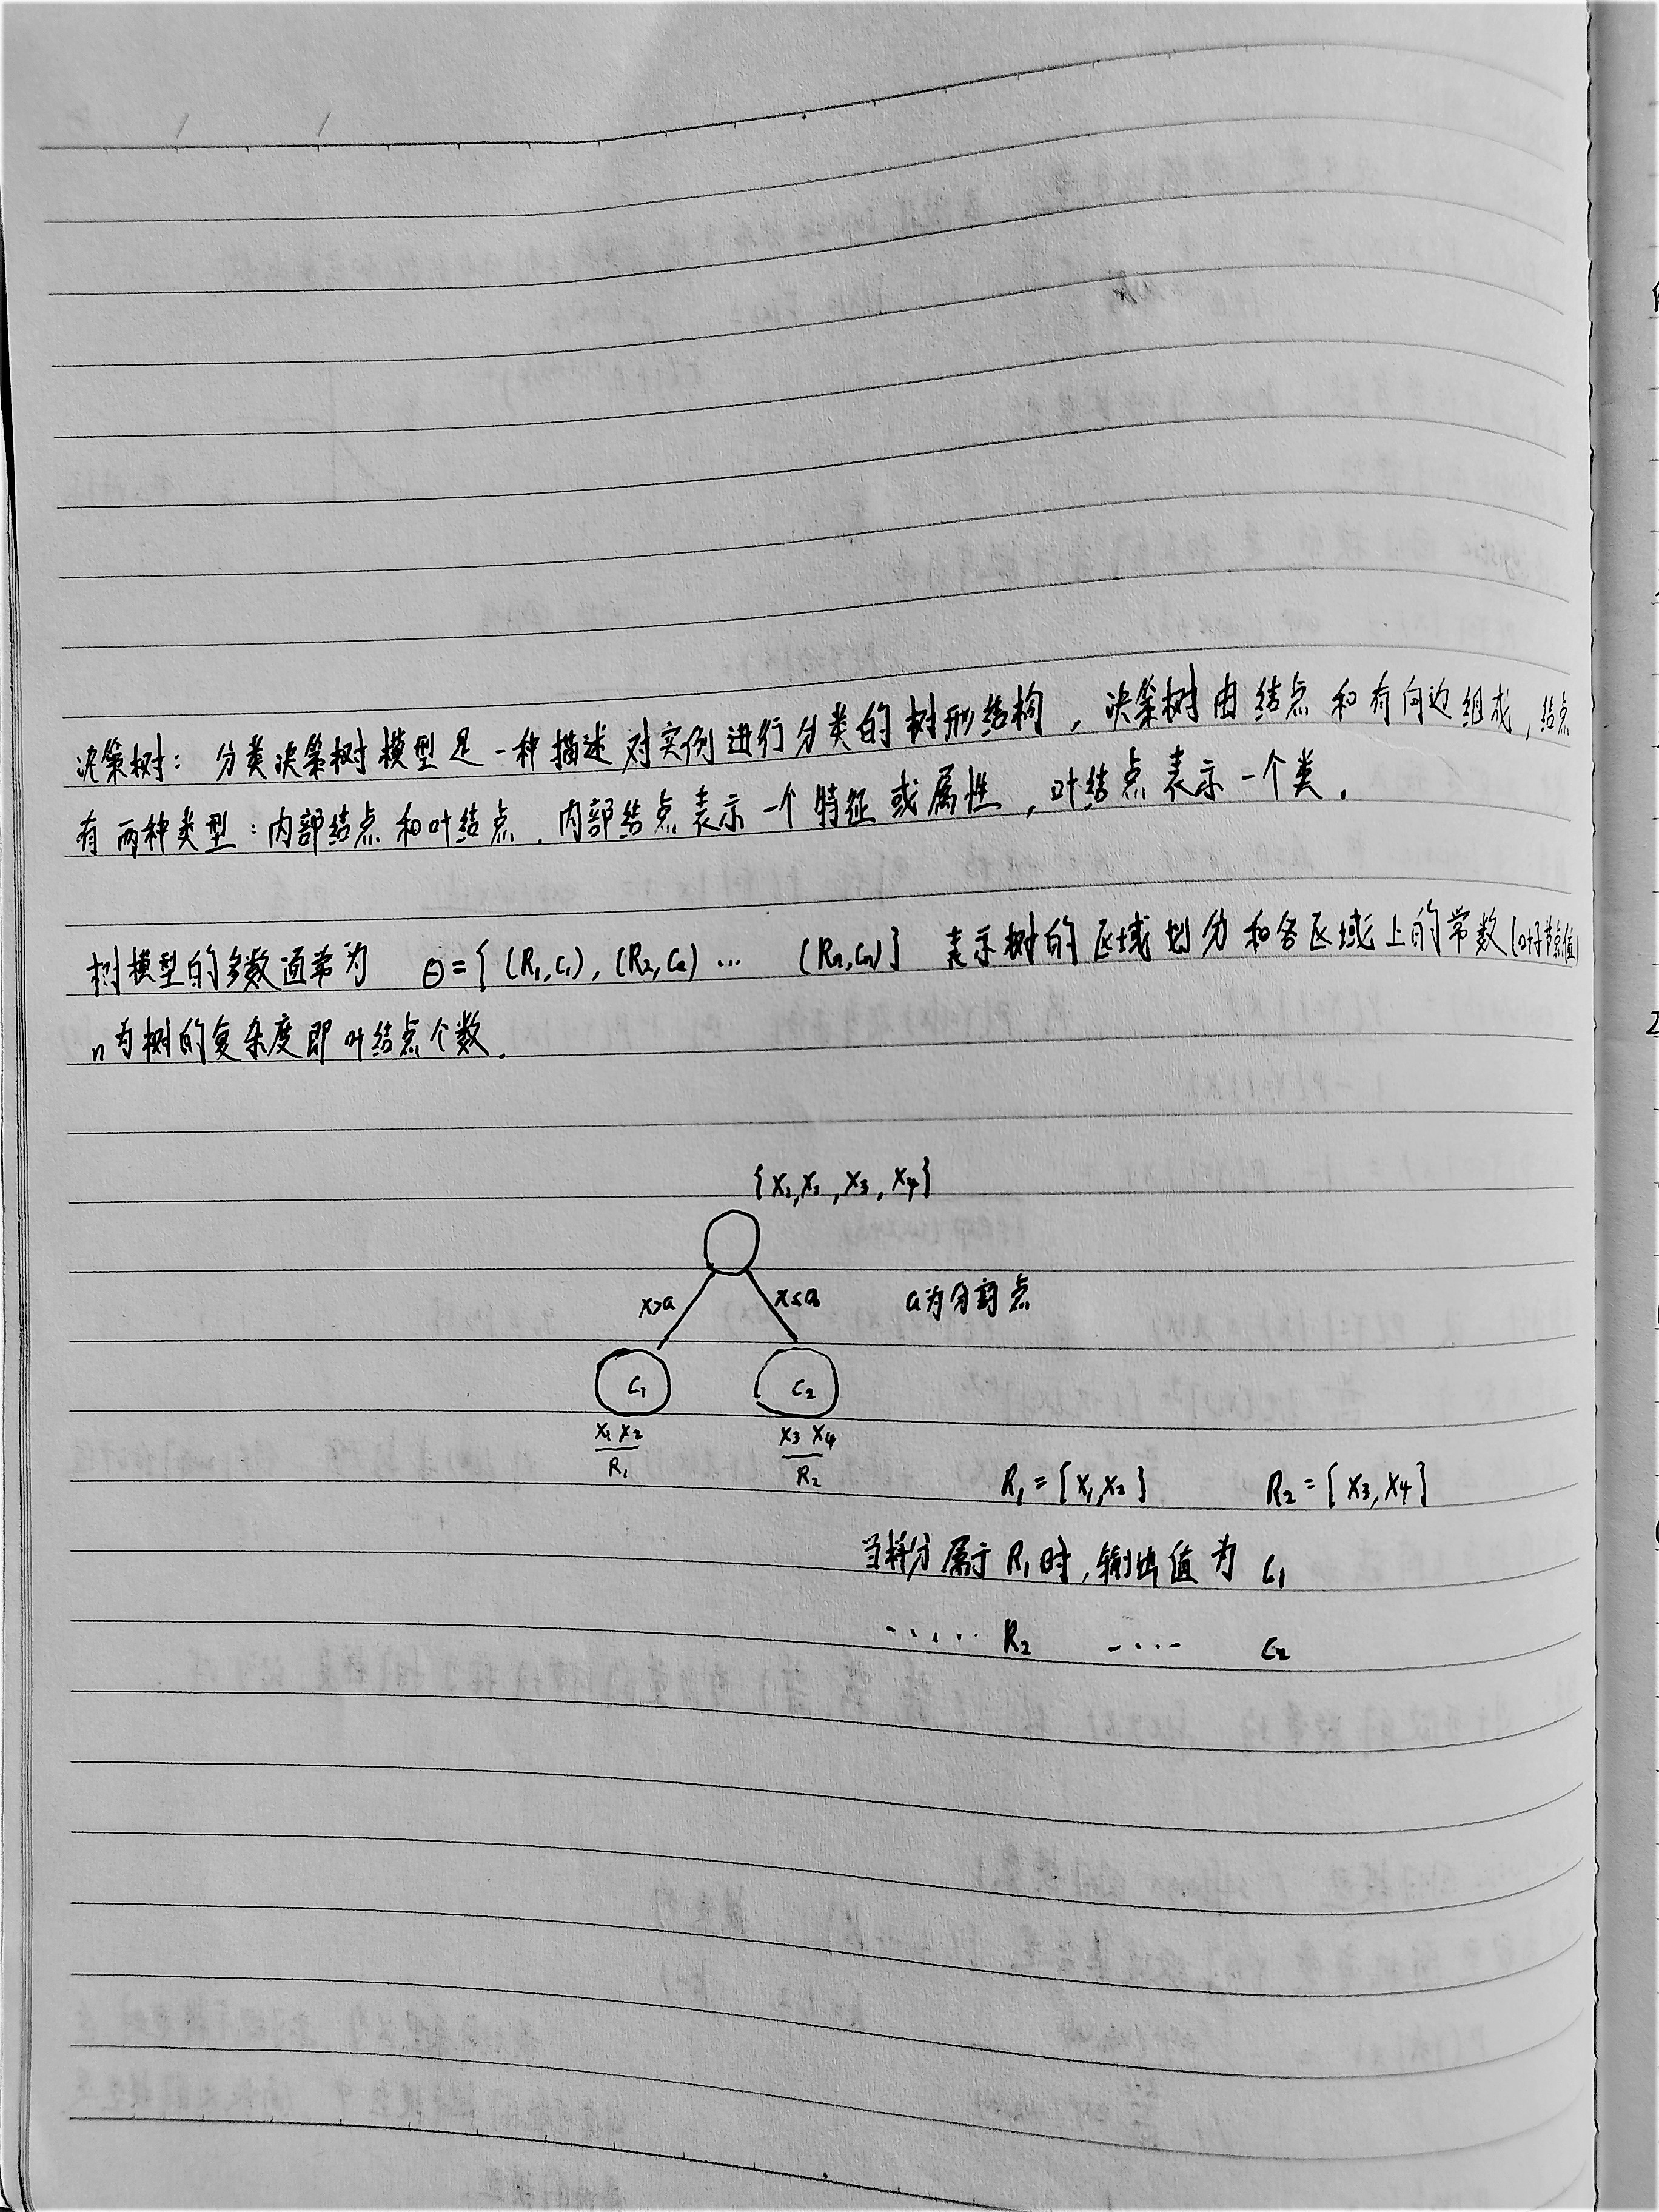 决策树：分类决策树模型是一种描述对实例进行分类的树形结构，决策树由结点和有向边组成，结点
有两种类型：内部结点和叶结点．内部结点表示一个特征或属性，叶结点表示一个类．
树模型的参数通常为 θ={(R₁,C₁),(R₂,C₂)… (Rn,Cn)} 表示树的区域划分和各区域上的常数(叶子节点值)
n为树的复杂度即叶结点个数．
{x₁,x₂,x₃,x₄}
x>a x≤a a为分割点
C₁ C₂
x₁ x₂ x₃ x₄
R₁ R₂
R₁={x₁,x₂} R₂={x₃,x₄}
当样属于R₁时,输出值为 C₁
‥‥‥ R₂ ‥‥ C₂